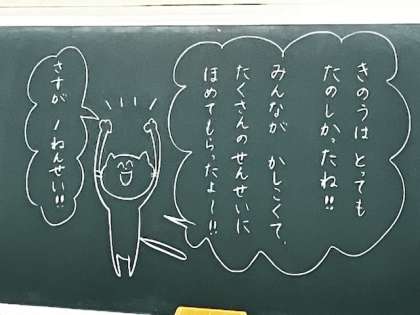 きのうは とっても
たのしかったね!!
みんなが かしこくて、
たくさんのせんせいに
ほめてもらったよ〜!!
さすが 1ねんせい!!